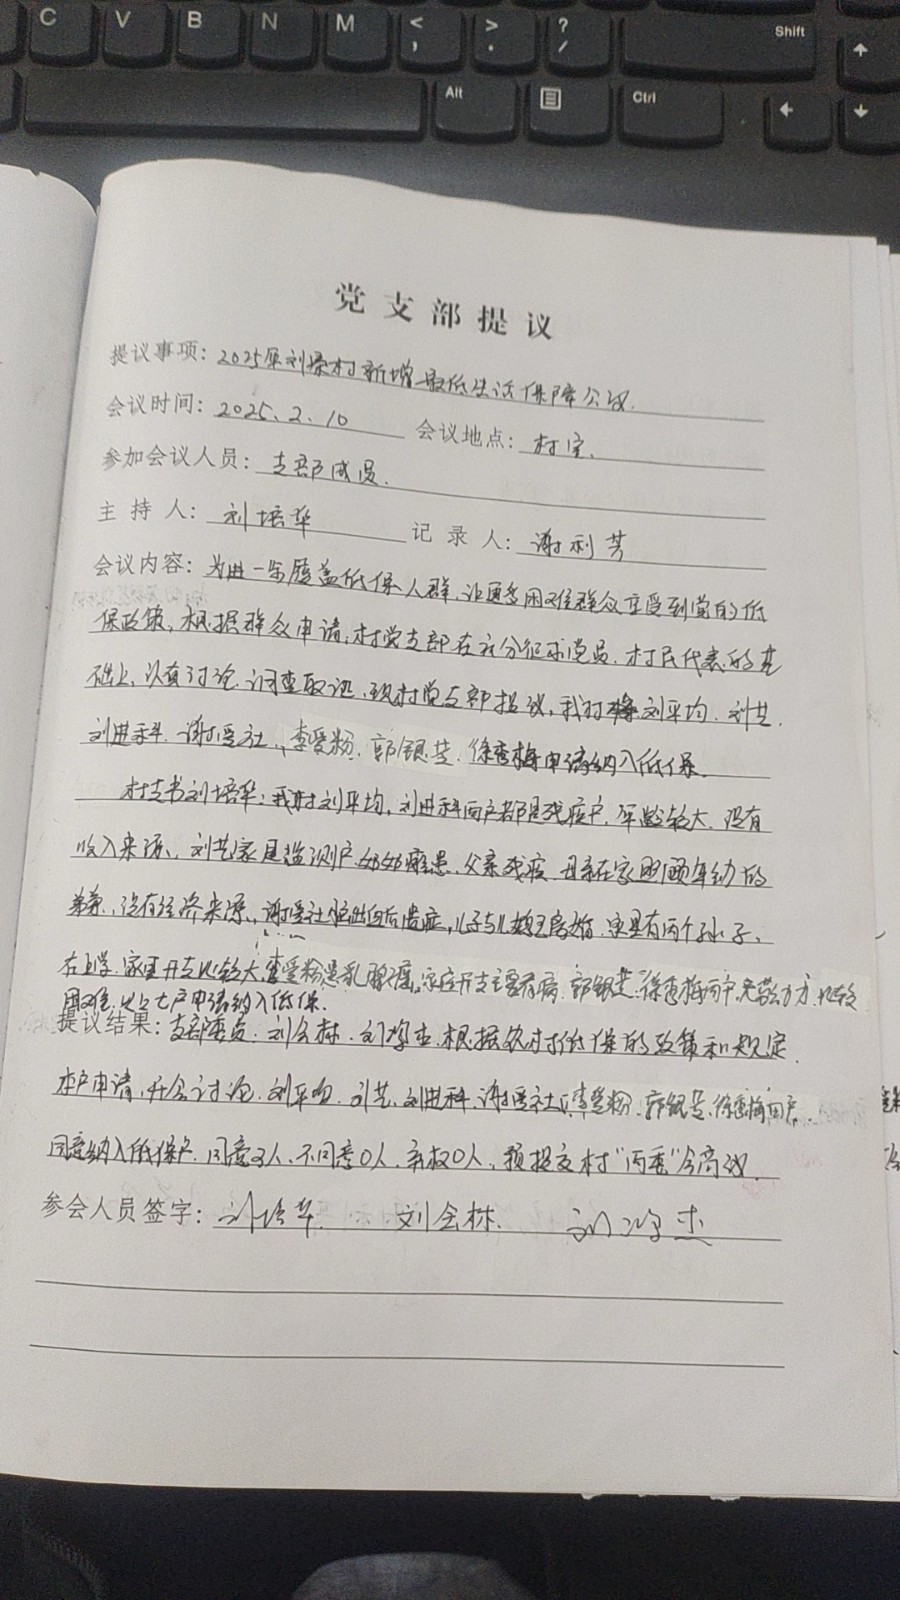 C V B N M < , > . ? / Shift ↑
Alt Ctrl ← ↓
党支部提议
提议事项：2025年刘梁村新增最低生活保障公议.
会议时间：2025.2.10 会议地点：村室.
参加会议人员：支部成员.
主持人：刘培华 记录人：谢利芳
会议内容：为进一步覆盖低保人群，让更多困难群众享受到党的低
保政策，根据群众申请，村党支部在充分征求党员、村民代表的基
础上，认真讨论、调查取证，现村党支部提议，我村刘平均、刘艺、
刘进科、谢爱社、李爱粉、郭银芝、徐杏梅申请纳入低保。
村支书刘培华：我村刘平均，刘进科两户都是残疾户，年龄较大，没有
收入来源，刘艺家是监测户，奶奶瘫患，父亲残疾，母亲在家照顾年幼的
弟弟，没有经济来源，谢爱社脑出血后遗症，儿子与儿媳已离婚，家里有两个孙子，
在上学，家里开支比较大，李爱粉患乳腺癌，家庭开支主要看病，郭银芝、徐杏梅两户无劳动力，比较
困难，以上七户申请纳入低保.
提议结果：支部委员：刘会林、刘鸿杰，根据农村低保的政策和规定，
本户申请，开会讨论，刘平均、刘艺、刘进科、谢爱社、李爱粉、郭银芝、徐杏梅四户
同意纳入低保户，同意3人，不同意0人，弃权0人，预提交村“两委”会商议
参会人员签字：刘培华 刘会林 刘鸿杰